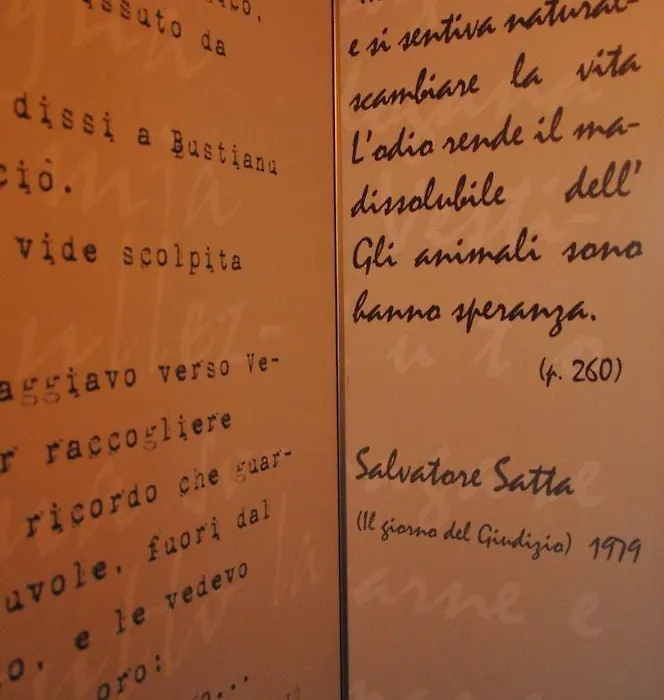 ssuto da
dissi a Bustianu
ciò.
vide scolpita
aggiavo verso Ve-
r raccogliere
ricordo che guar-
uvole, fuori dal
o, e le vedevo
oro:
e si sentiva natural-
scambiare la vita
L'odio rende il ma-
dissolubile dell'
Gli animali sono
hanno speranza.
(p. 260)
Salvatore Satta
(Il giorno del Giudizio) 1979